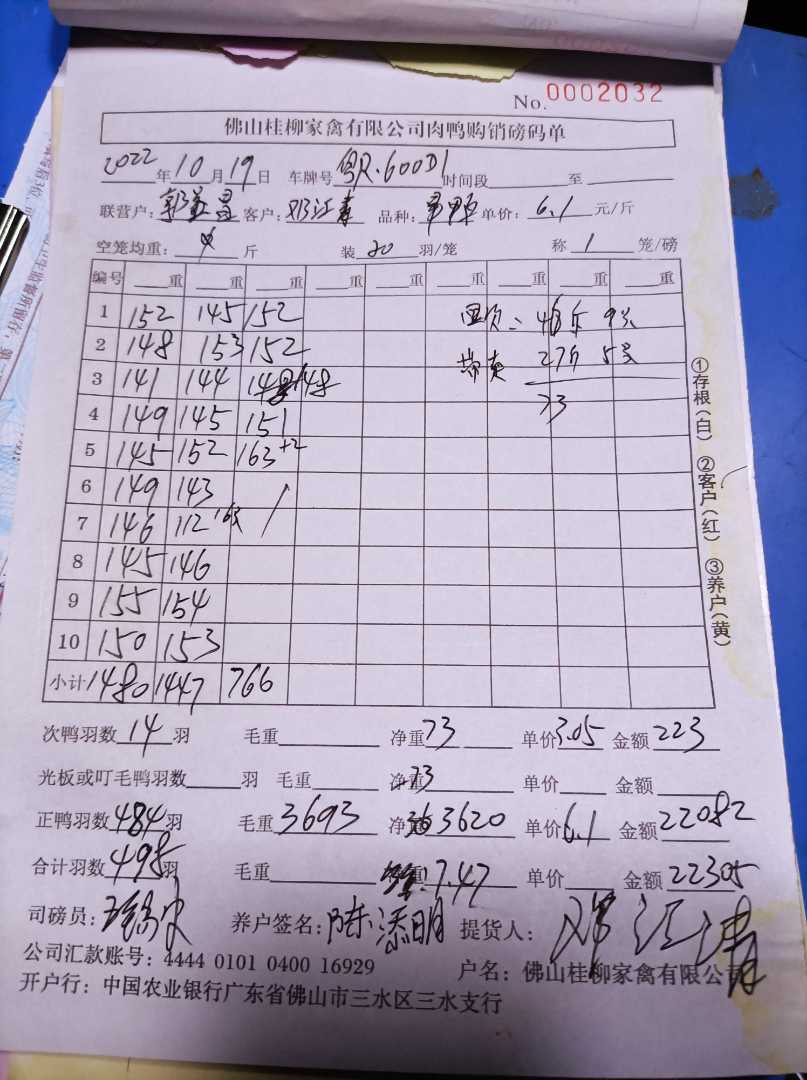 No. 0002032
佛山桂柳家禽有限公司肉鸭购销磅码单
2022年10月19日 车牌号 粤R·600D1 时间段 至
联营户: 客户: 邓江青 品种: 单价: 6.1 元/斤
空笼均重: 斤 装 20 羽/笼 称 1 笼/磅
编号 重 重 重 重 重 重 重 重 重
1 152 145 152 48斤 9只
2 148 153 152 27斤 5只
3 141 144 148 73
4 149 145 151
5 145 152 163+2
6 149 143
7 146 112 16只
8 145 146
9 155 154
10 150 153
小计 1480 1447 766
①存根(白) ②客户(红) ③养户(黄)
次鸭羽数 14 羽 毛重 净重 73 单价 3.05 金额 223
光板或叮毛鸭羽数 羽 毛重 净重 -73 单价 金额
正鸭羽数 484 羽 毛重 3693 净重 3620 单价 6.1 金额 22082
合计羽数 498 羽 毛重 7.47 单价 金额 22305
司磅员: 养户签名: 陈添明 提货人: 邓江青
公司汇款账号: 4444 0101 0400 16929 户名: 佛山桂柳家禽有限公司
开户行: 中国农业银行广东省佛山市三水区三水支行